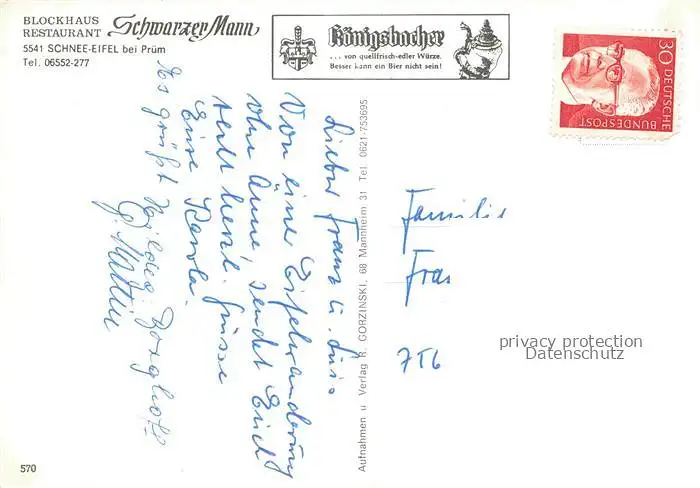 BLOCKHAUS
RESTAURANT Schwarzer Mann
5541 SCHNEE-EIFEL bei Prüm
Tel. 06552-277
Königsbacher
... von quellfrisch-edler Würze.
Besser kann ein Bier nicht sein!
30 DEUTSCHE
BUNDESPOST
Lieber Franz u.
Von einer Eifelwanderung
ohne Änne sendet Euch
recht herzl. Grüsse
Eure Karola.
Es grüßt Hildeg.
Aufnahmen u Verlag R. GORZINSKI, 68 Mannheim 31 Tel 0621-753695
Familie
Fra
756
privacy protection
Datenschutz
570